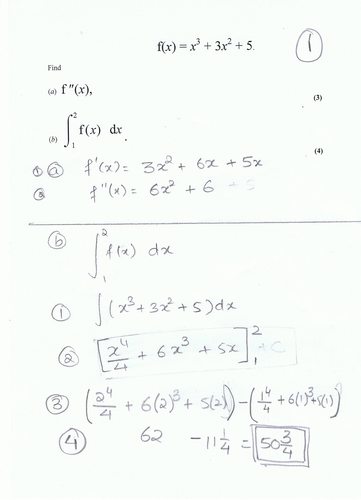 f(x) = x³ + 3x² + 5.
1
Find
(a) f ″(x),
(3)
(b) ∫₁² f(x) dx.
(4)
① ⓐ f'(x) = 3x² + 6x + 5x
② f"(x) = 6x² + 6 + 5
ⓑ ∫₁² f(x) dx
① ∫(x³ + 3x² + 5)dx
② [x⁴/4 + 6x³ + 5x]₁² + C
③ (2⁴/4 + 6(2)³ + 5(2)) - (1⁴/4 + 6(1)³ + 5(1))
④ 62 - 11 1/4 = 50 3/4